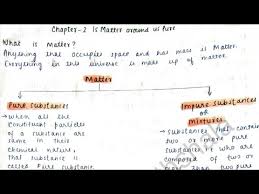 Chapter-2 Is Matter around us Pure
What is Matter?
Anything that occupies space and has mass is Matter.
Everything in this universe is made up of matter.
Matter
Pure Substances
→ When all the
constituent particles
of a substance are
same in their
chemical nature,
that substance is
called Pure substance.
Impure Substances
or
Mixtures
→ Substances that contain
two or more pure
substances and who
are composed of two
or more than